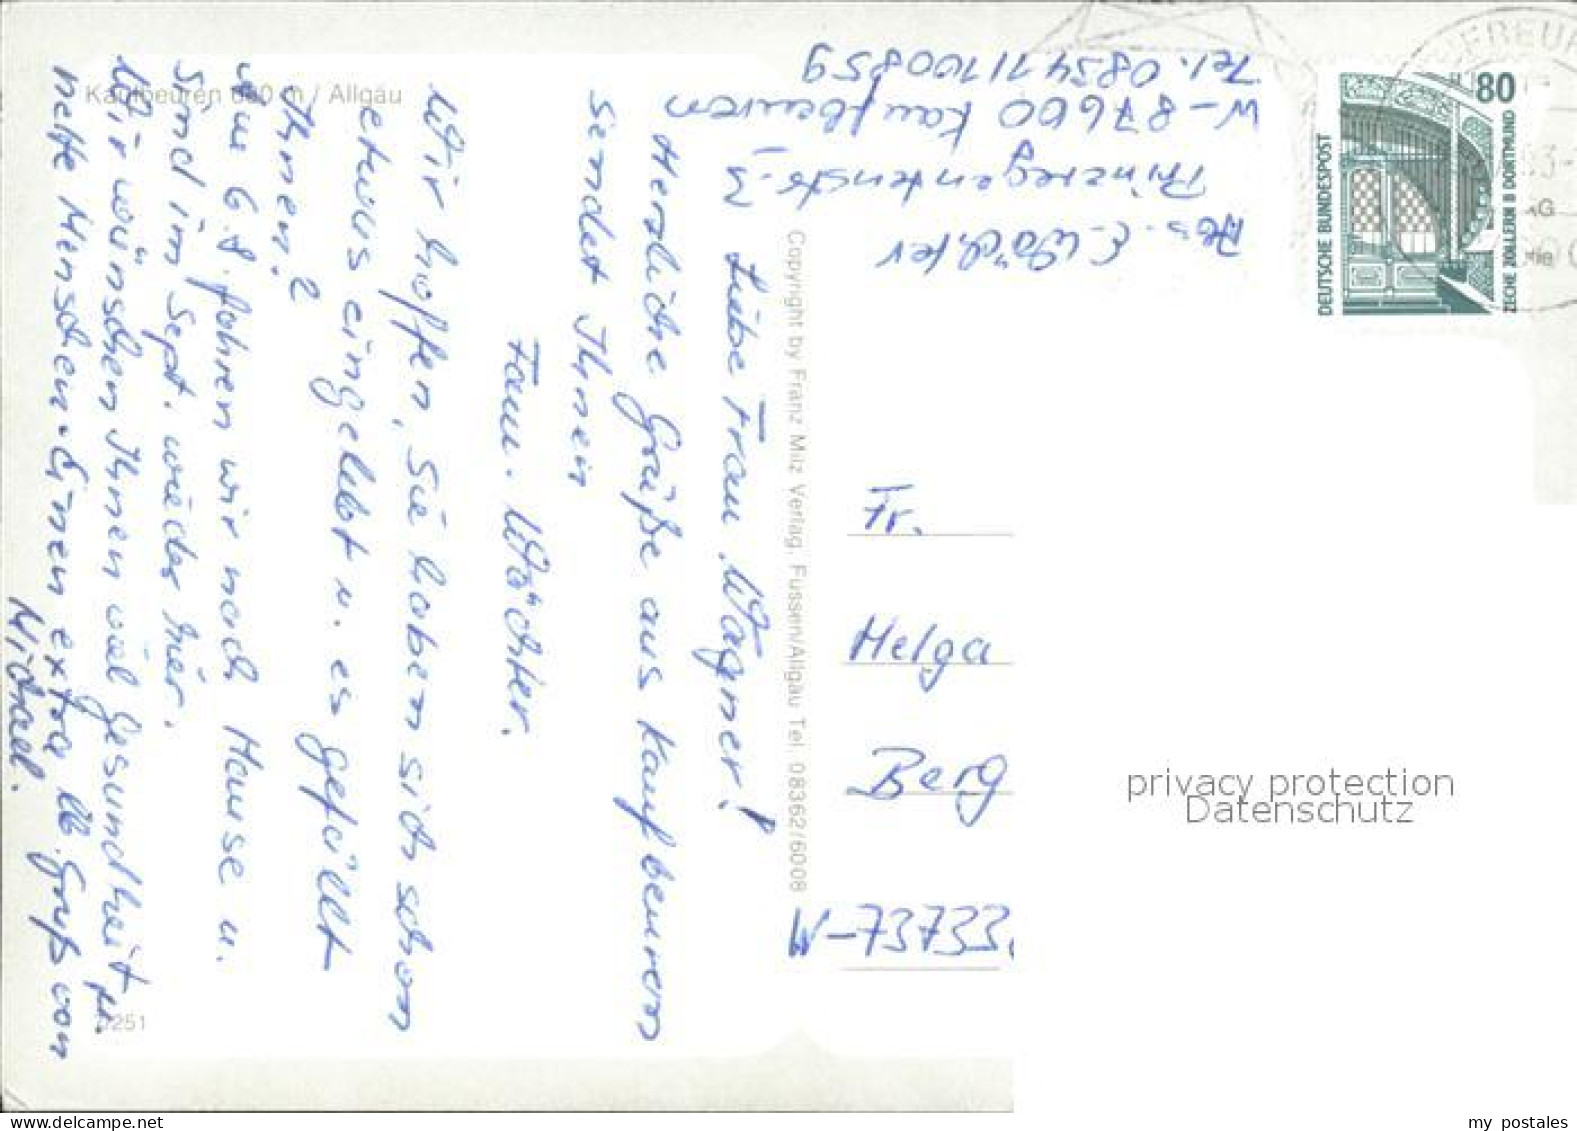 Kaufbeuren 680 m / Allgäu
Abs. E. Wächter
Prinzregentenstr. 3
W-87600 Kaufbeuren
Tel. 08341/100859
Liebe Frau Wagner!
Herzliche Grüße aus Kaufbeuren
sendet Ihnen
Fam. Wächter.
Wir hoffen, Sie haben sich schon
etwas eingelebt u. es gefällt
Ihnen?
Am 6.8. fahren wir nach Hause u.
sind im Sept. wieder hier.
Wir wünschen Ihnen viel Gesundheit u.
nette Menschen. Einen extra lb. Gruß von
Michael.
251
Copyright by Franz Milz Verlag, Füssen/Allgäu Tel. 08362/6008
DEUTSCHE BUNDESPOST
80
ZECHE ZOLLERN II DORTMUND
Fr.
Helga
Berg
W-73733
privacy protection
Datenschutz
my postales
www.delcampe.net